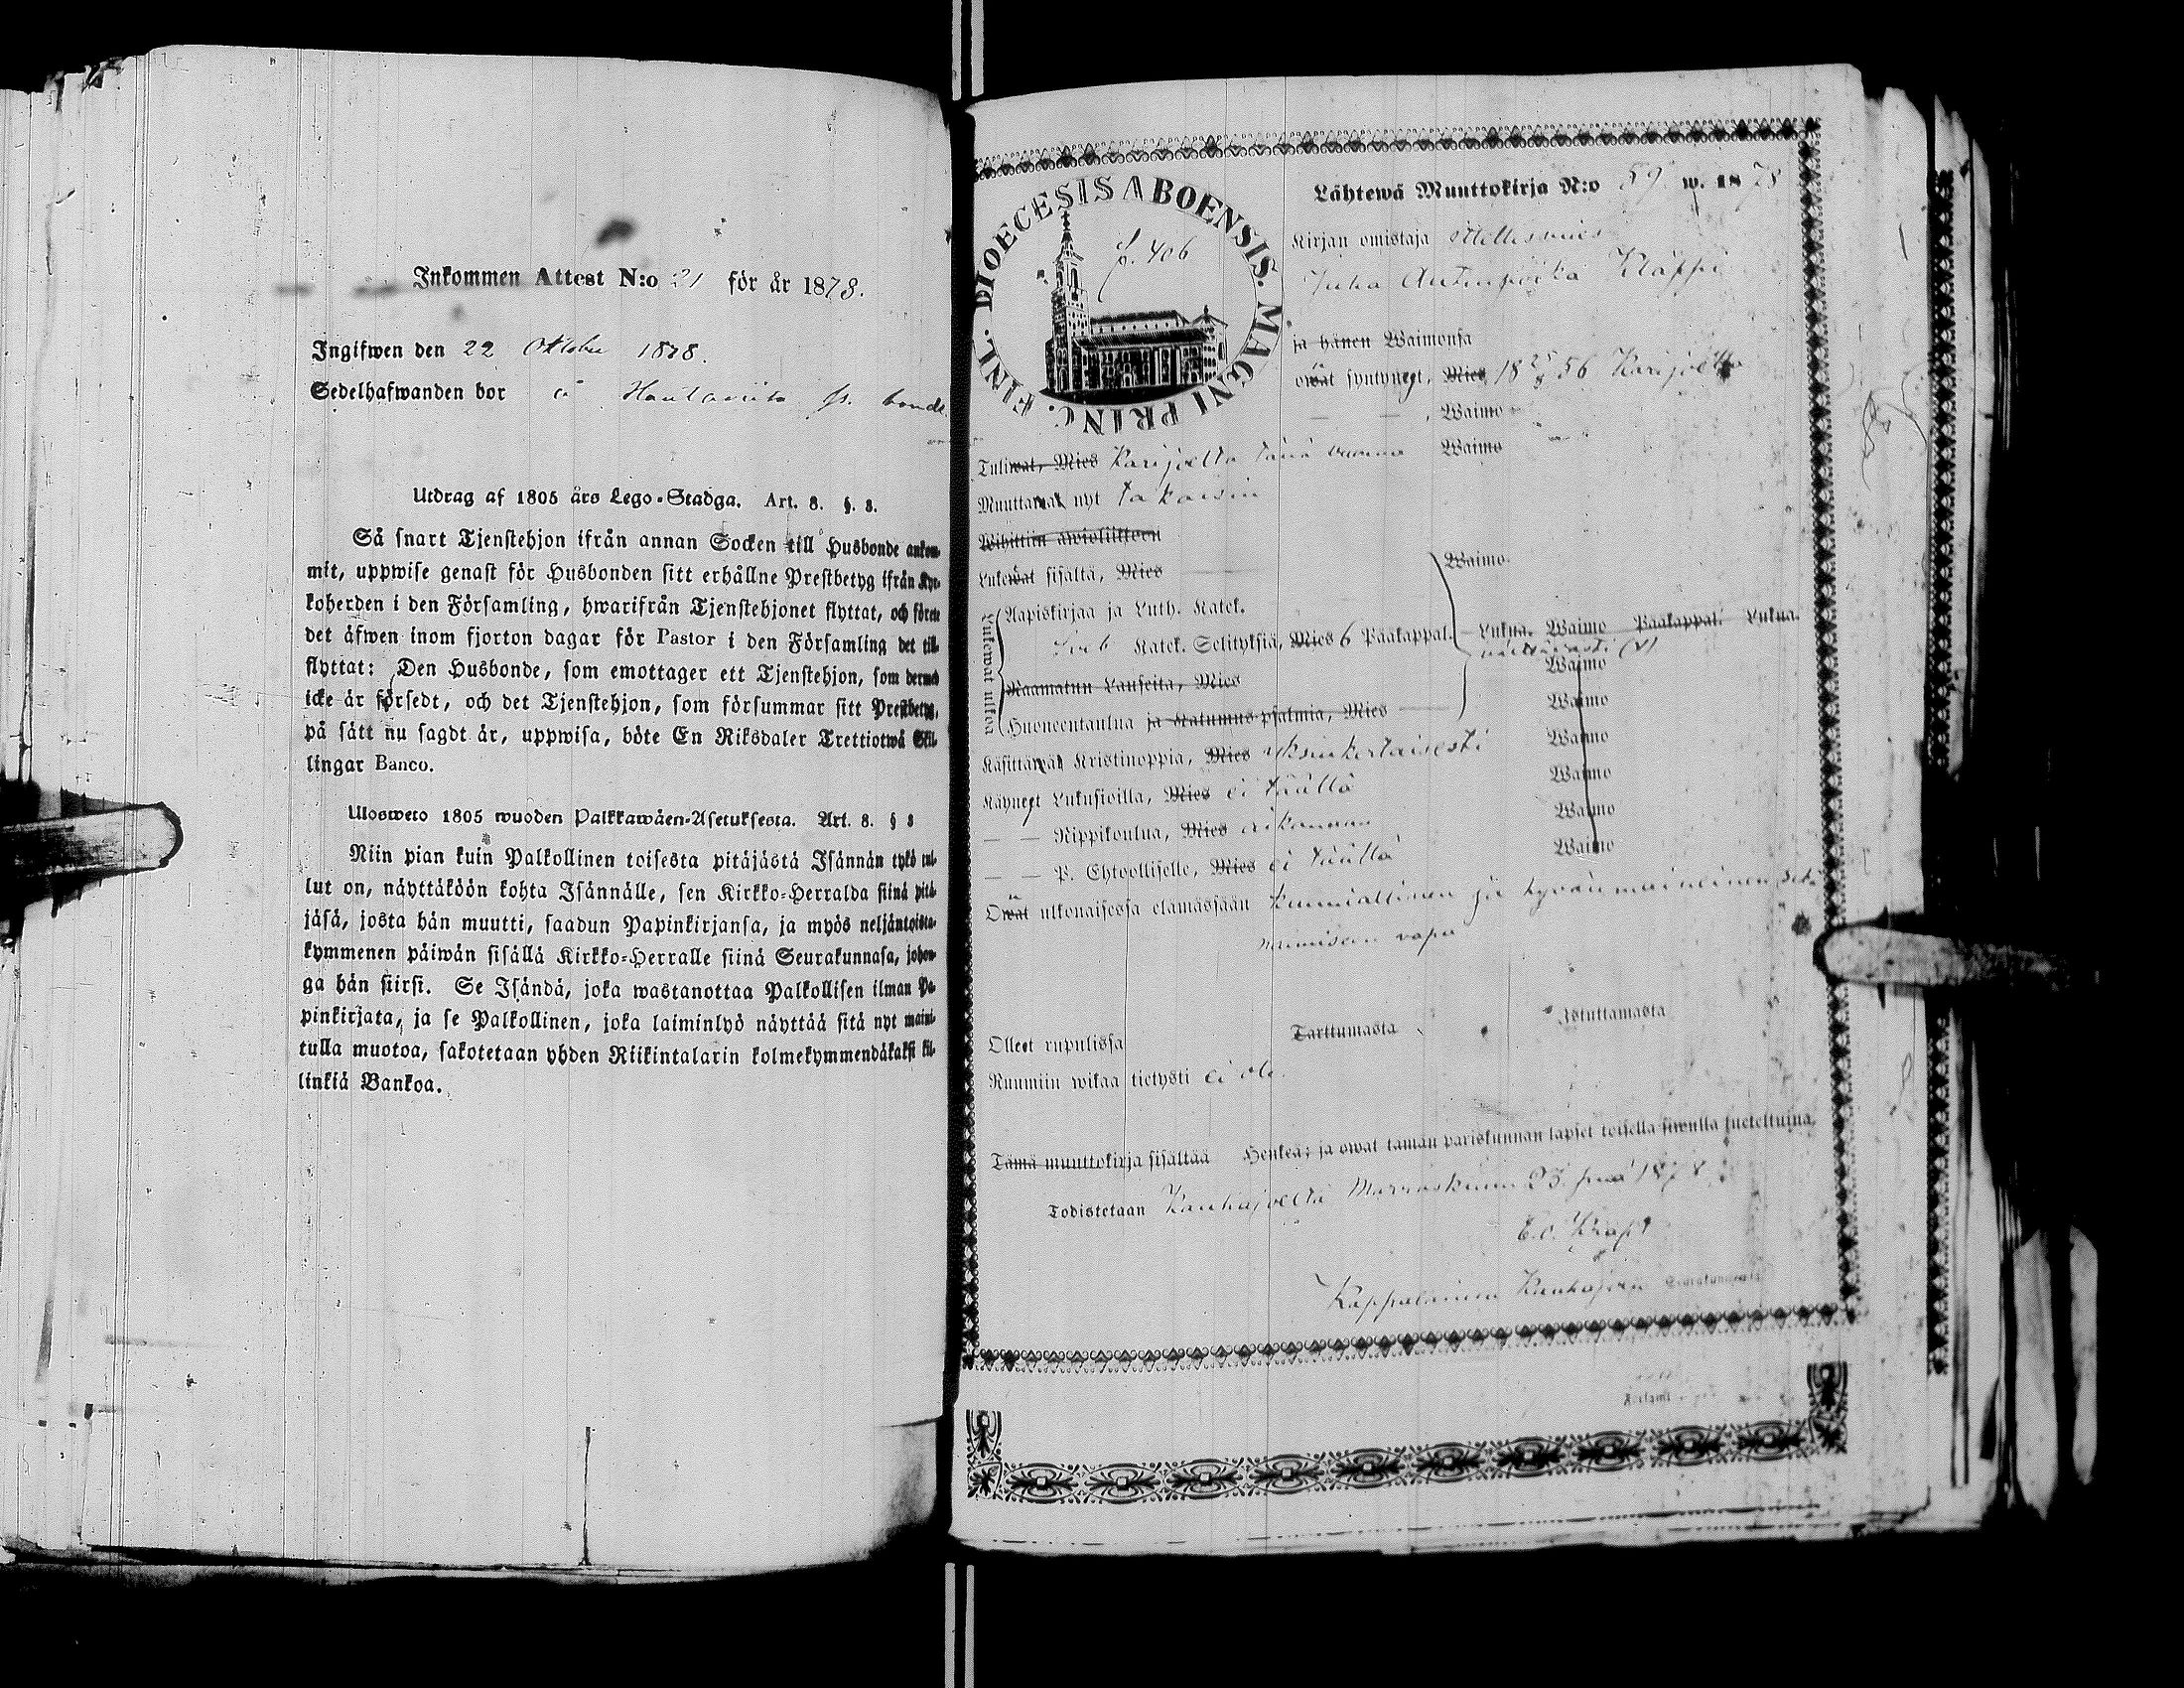 Inkommen Attest N:o 21 för år 1878.
Ingifwen den 22 Oktober 1878.
Sedelhafwanden bor å
Utdrag af 1805 års Lego-Stadga. Art. 8. §. 8.
Så snart Tjenstehjon ifrån annan Socken till Husbonde ankom-
mit, uppwise genast för Husbonden sitt erhållne Prestbetyg ifrån Kyr-
koherden i den Församling, hwarifrån Tjenstehjonet flyttat, och förete
det äfwen inom fjorton dagar för Pastor i den Församling det till-
flyttat: Den Husbonde, som emottager ett Tjenstehjon, som dermed
icke är försedt, och det Tjenstehjon, som försummar sitt Prestbetyg,
på sätt nu sagdt är, uppwisa, böte En Riksdaler Trettiotwå Skil-
lingar Banco.
Ulosweto 1805 wuoden Palkkawäen-Asetuksesta. Art. 8. § 8
Niin pian kuin Palkollinen toisesta pitäjästä Isännän tykö tul-
lut on, näyttäköön kohta Isännälle, sen Kirkko-Herralda siinä pitä-
jäsä, josta hän muutti, saadun Papinkirjansa, ja myös neljäntoista-
kymmenen päiwän sisällä Kirkko-Herralle siinä Seurakunnasa, johon-
ga hän siirsi. Se Isändä, joka wastanottaa Palkollisen ilman Pa-
pinkirjata, ja se Palkollinen, joka laiminlyö näyttää sitä nyt maini-
tulla muotoa, sakotetaan yhden Riikintalarin kolmekymmendäkaksi kil-
linkiä Bankoa.
FINL. DIOECESIS ABOENSIS. MAGNI PRINC.
p. 406
Lähtewä Muuttokirja N:o 59 w. 1878
Kirjan omistaja
Juha Antinpoika Kläppi
ja hänen Waimonsa
owat syntynyt, Mies, 18 25/8 56 Karijoella
— — , Waimo
Tuliwat, Mies Karijoelta tänä vuonna Waimo
Muuttawat nyt takaisin
Wihittiin awioliittoon
Lukewat sisältä, Mies Waimo.
Lukewat ulkoa
Aapiskirjaa ja Luth. Katek.
Katek. Selityksiä, Mies 6 Pääkappal. Lukua. Waimo Pääkappal. Lukua.
Waimo
Raamatun Lauseita, Mies Waimo
Huoneentaulua ja Katumus-psalmia, Mies Waimo
Käsittäwät Kristinoppia, Mies yksinkertaisesti Waimo
Käyneet Lukusioilla, Mies ei täällä Waimo
— — Rippikoulua, Mies aikanaan Waimo
— — P. Ehtoolliselle, Mies ei täällä
Owat ulkonaisessa elämässään kunniallinen ja hyvänmaineinen sekä
naimiseen vapa
Olleet rupulissa Tarttumasta Istuttamasta
Ruumiin wikaa tietysti ei ole.
Tämä muuttokirja sisältää Henkeä; ja owat tämän pariskunnan lapset toisella siwulla lueteltuina.
Todistetaan Kauhajoella Marraskuun 23. 1878.
Kappalainen Kauhajoen Seurakunnassa